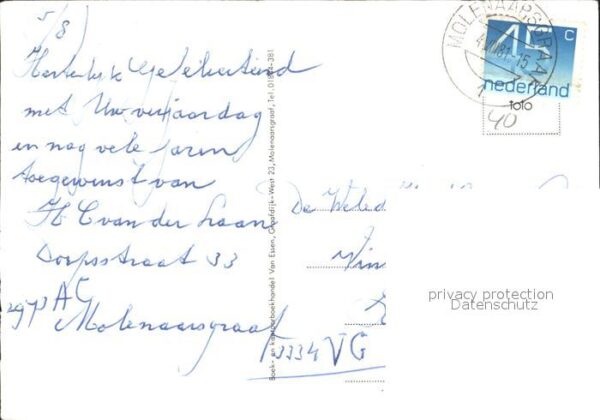 5/8
Hartelijk Gefeliciteerd
met Uw verjaardag
en nog vele jaren
toegewenst van
H C van der Laan
Dorpsstraat 33
2973 AG
Molenaarsgraaf
Boek- en kantoorboekhandel Van Essen, Graafdijk-West 23, Molenaarsgraaf, Tel. 01844-381
MOLENAARSGRAAF
4 VIII 81-15
45 C
nederland
foto
40
De Weled
Vin
3334 VG
privacy protection
Datenschutz